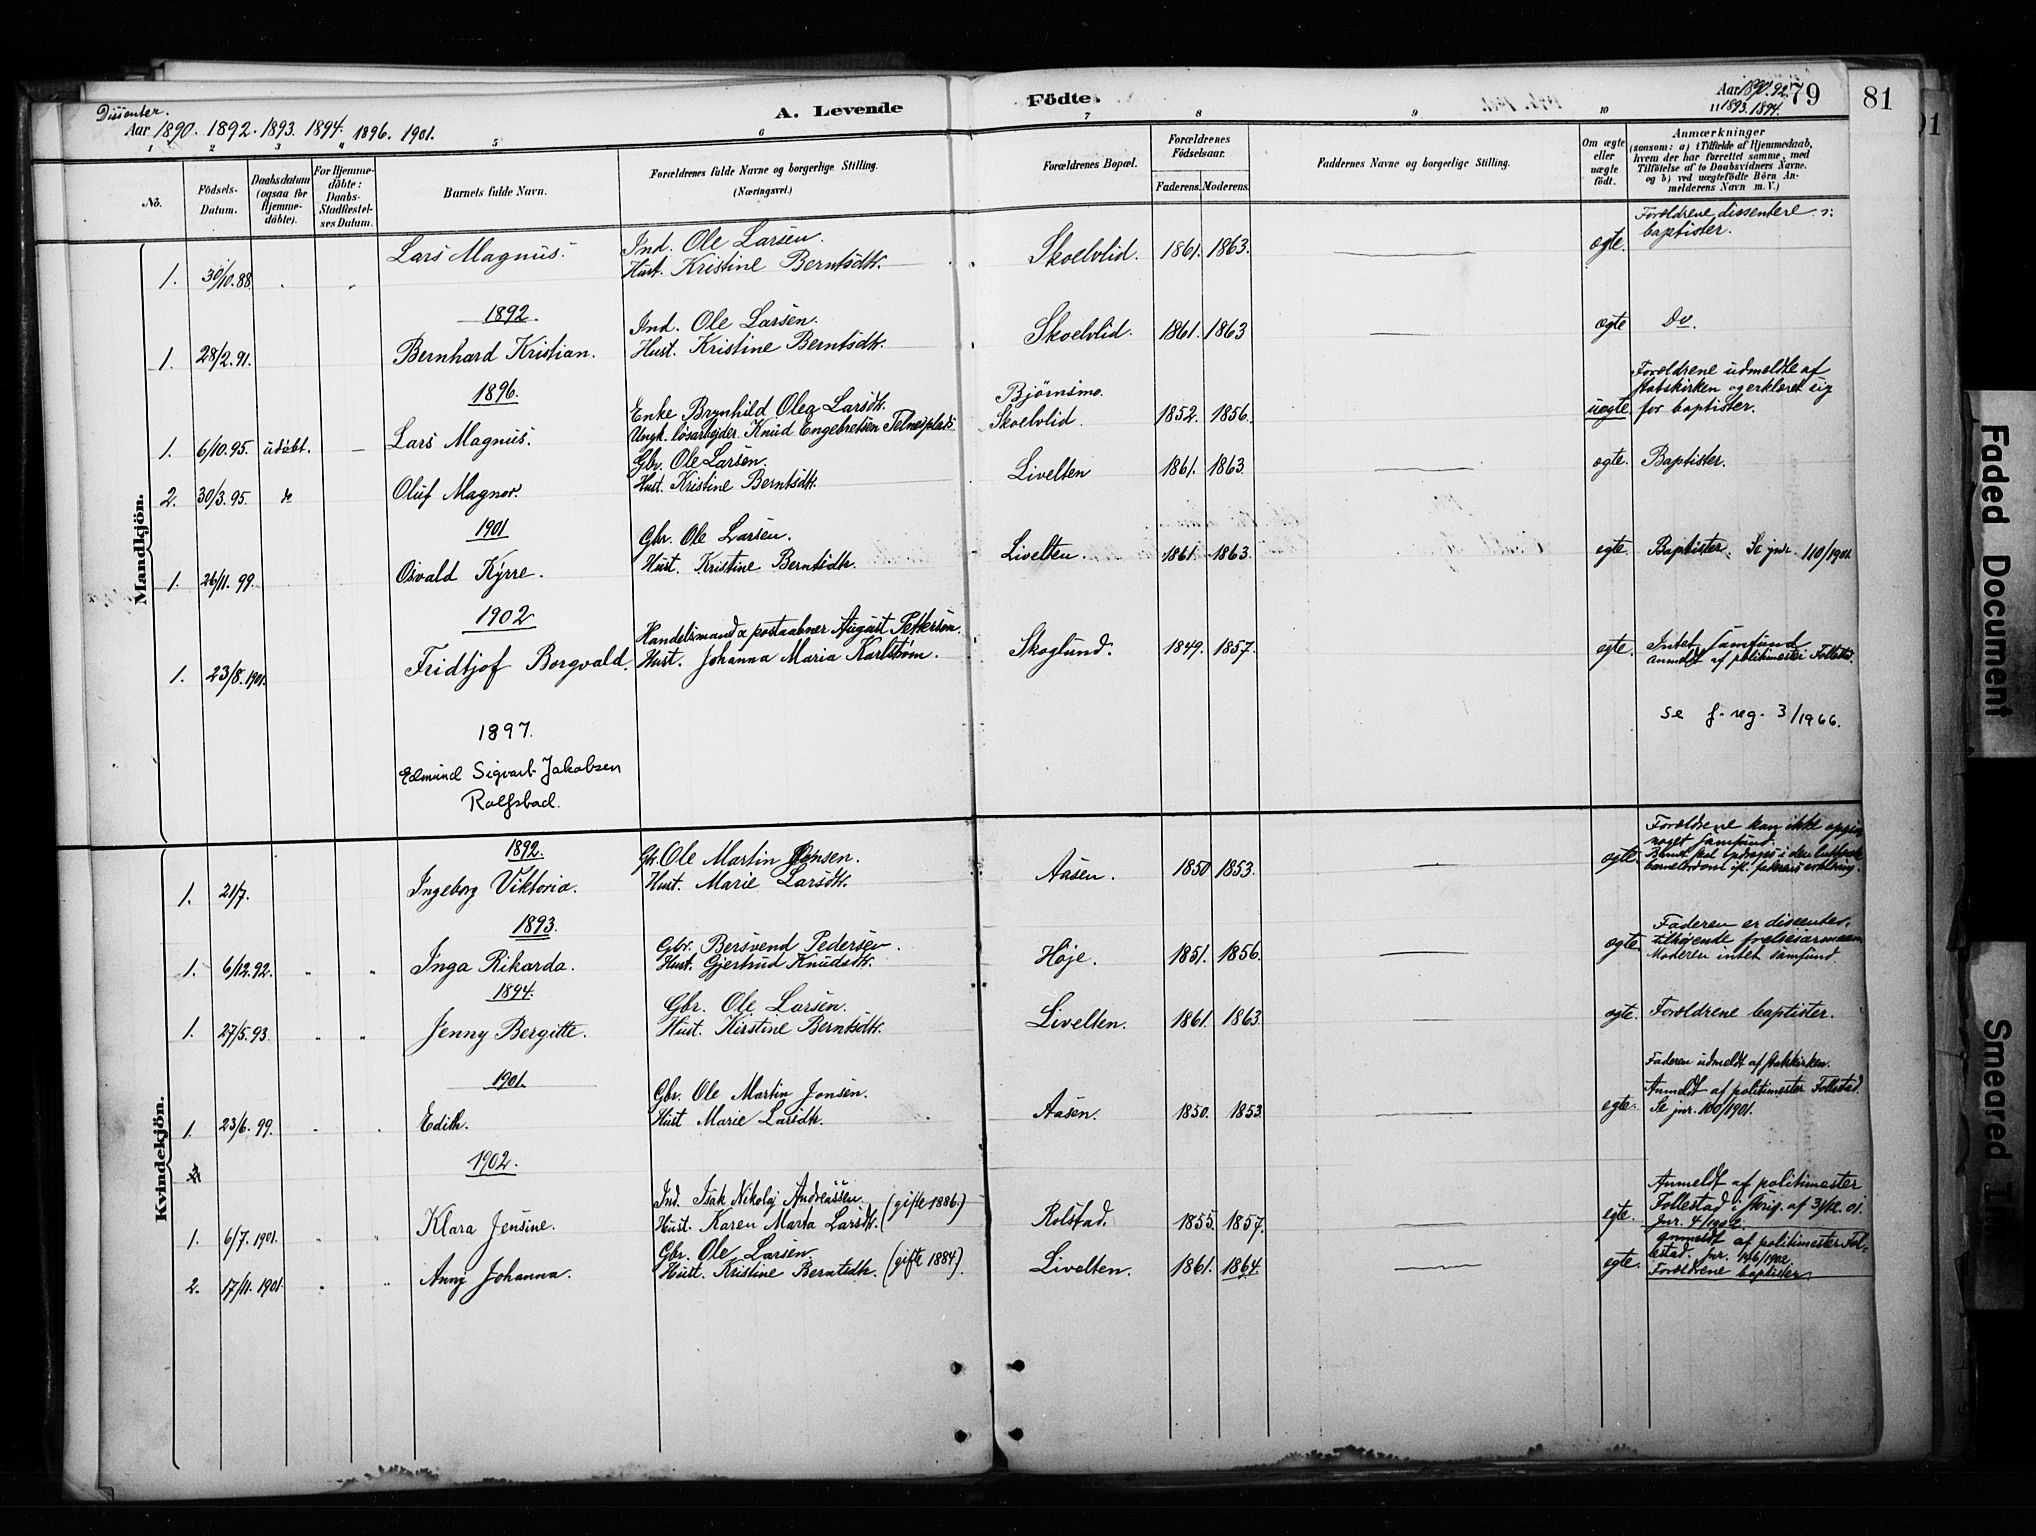 Dissenter.
Aar 1890. 1892. 1893. 1894. 1896. 1901.
A. Levende Födte.
Aar 1890. 92.
1893. 1894.
79
81
91
1 2 3 4 5 6 7 8 9 10 11
No.
Födsels-Datum.
Daabsdatum (ogsaa for Hjemmedöbte).
For Hjemmedöbte: Daabs-Stadfæstelses Datum.
Barnets fulde Navn.
Forældrenes fulde Navne og borgerlige Stilling.
(Næringsvei.)
Forældrenes Bopæl.
Forældrenes Födselsaar.
Faderens. Moderens.
Faddernes Navne og borgerlige Stilling.
Om ægte eller uægte födt.
Anmærkninger
(saasom: a) i Tilfælde af Hjemmedaab, hvem der har forrettet samme, med Tilföielse af to Daabsvidners Navne, og b) ved uægtefödte Börn Anmelderens Navn m. V.)
Mandkjön.
1. 30/10.88. Lars Magnus. Ind. Ole Larsen. Skoelvlid. 1861. 1863. ægte. Forældrene dissentere :
Hust. Kristine Berntsdtr. baptister.
1892.
1. 28/2.91. Bernhard Kristian. Ind. Ole Larsen. Skoelvlid. 1861. 1863 ægte Do.
Hust. Kristine Berntsdtr.
1896.
1. 6/10.95. udøbt. Lars Magnus. Enke Brynhild Olea Larsdtr. Bjørnsmo. 1852. 1856. uægte. Forældrene udmeldte af
Ungk. løsarbejder Knud Engebretsen Telnesplads Skoelvlid statskirken og erklæret sig
for baptister.
2. 30/3.95. do Oluf Magnor. Gbr. Ole Larsen. Livelten 1861. 1863. ægte. Baptister.
Hust. Kristine Berntsdtr.
1901
1. 26/11.99. Osvald Kyrre. Gbr. Ole Larsen. Livelten. 1861. 1863. egte. Baptister. Se jnr. 110/1901.
Hust. Kristine Berntsdtr.
1902
1. 23/8.1901. Fridtjof Borgvald. Handelsmand & postaabner August Petterson. Skoglund. 1849. 1857. egte. Intet samfund
Hust. Johanna Maria Karlstrøm. anmeldt af politimester Follestad.
1897.
Edmund Sigvart Jakobsen
Rolfsbad.
se f. reg. 3/1966.
Kvindekjön.
1892.
1. 21/7. Ingeborg Viktoria. Gbr. Ole Martin Jonsen. Aasen. 1850 1853. ægte. Forældrene kan ikke opgive
Hust. Marie Larsdtr. noget samfund.
1893.
1. 6/12.92. Inga Rikarda. Gbr. Bersvend Pedersen. Høje. 1851. 1856. ægte. Faderen er dissenter,
Hust. Gjertrud Knudsdtr. tilhøjende frelsesarmeen.
Moderen intet samfund.
1894.
1. 27/5.93. Jenny Bergitte. Gbr. Ole Larsen. Livelten. 1861. 1863. ægte. Forældrene baptister.
Hust. Kirstine Berntsdtr.
1901.
1. 23/6.99. Edith. Gbr. Ole Martin Jonsen. Aasen. 1850. 1853. egte. Faderen udmeldt af statskirken.
Hust Marie Larsdtr. Anmeldt af politimester Follestad.
Se jnr. 100/1901.
1902.
1. 6/7.1901. Klara Jensine. Ind. Isak Nikolaj Andreassen (gifte 1886.) Rolstad. 1855. 1857. egte. Anmeldt af politimester
Hust. Karen Marta Larsdtr. Follestad i skriv. af 31/12. 01.
Jnr. 4/1902.
2. 17/11.1901. Anny Johanna. Gbr. Ole Larsen. (gifte 1884). Livelten. 1861. 1864. egte. Anmeldt af politimester Fol-
Hust. Kristine Berntsdtr. lestad. Jnr. 146/1902.
Forældrene baptister.
Faded Document
Smeared Ink